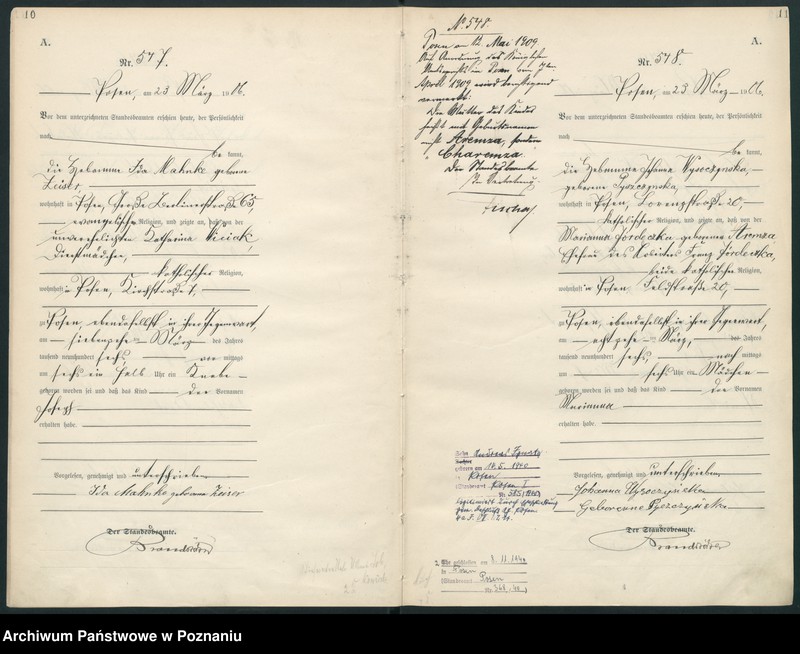 10
A.
Nr. 547.
Posen, am 23 März 1906.
Vor dem unterzeichneten Standesbeamten erschien heute, der Persönlichkeit
nach
be kannt,
die Hebamme Ida Mahnke geborene
Zeiser,
wohnhaft in Posen, Große Berlinerstraße 65
evangelischer Religion, und zeigte an, daß von der
unverehelichten Katharina
Dienstmädchen,
katholischer Religion,
wohnhaft in Posen, Kirchstraße
zu Posen, ebendaselbst in ihrer Gegenwart,
am siebenzehnten März des Jahres
tausend neunhundert sechs, mittags
um sechs ein halb Uhr ein Knabe
geboren worden sei und daß das Kind den Vornamen
Joseph
erhalten habe.
Vorgelesen, genehmigt und unterschrieben
Ida Mahnke geborene Zeiser
Der Standesbeamte.
11
A.
No 548.
Posen am 12. Mai 1909
Auf Anordnung des Königlichen
Amtsgerichts in Posen vom
April 1909 wird
vermerkt:
Die Mutter des Kindes
heißt mit Geburtsnamen
nicht Aremza, sondern
Charemza.
Der Standesbeamte
In Vertretung.
Nr. 548.
Posen, am 23 März 1906.
Vor dem unterzeichneten Standesbeamten erschien heute, der Persönlichkeit
nach
be kannt,
die Hebamme Johanna Wysoczynska,
geborene Pyszczynska,
wohnhaft in Posen, 20,
katholischer Religion, und zeigte an, daß von der
Marianna geborene Aremza,
Ehefrau des Arbeiters Franz
beide katholischer Religion,
wohnhaft in Posen Feldstraße 20,
zu Posen, ebendaselbst in ihrer Gegenwart,
am achtzehnten März, des Jahres
tausend neunhundert sechs, nach mittags
um sechs Uhr ein Mädchen
geboren worden sei und daß das Kind den Vornamen
Marianna
erhalten habe.
Vorgelesen, genehmigt und unterschrieben
Johanna Wysoczyńska
Geborene Pyszczyńska
Der Standesbeamte.
geboren am 14.5.1940
in Posen
Standesamt Posen I
2. Ehe geschlossen am 8.11.1940
in Posen
Standesamt Posen
Archiwum Państwowe w Poznaniu